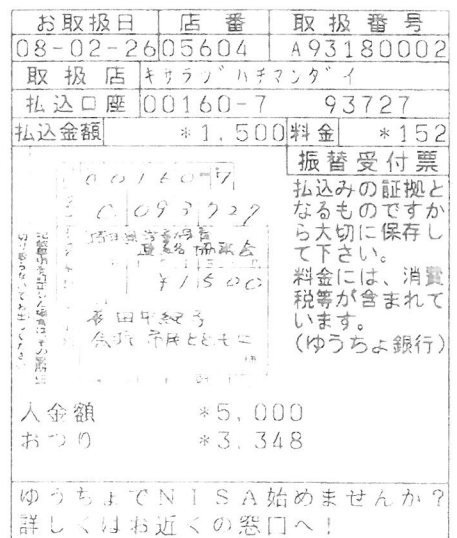 お取扱日 店番 取扱番号
08-02-26 05604 A93180002
取扱店 キサラヅハチマンダイ
払込口座 00160-7 93727
払込金額 *1,500 料金 *152
振替受付票
払込みの証拠と
なるものですか
ら大切に保存し
て下さい。
料金には、消費
税等が含まれて
います。
(ゆうちょ銀行)
00160-7
093727
協議会
¥1500
市民とともに
入金額 *5,000
おつり *3,348
ゆうちょでNISA始めませんか?
詳しくはお近くの窓口へ!